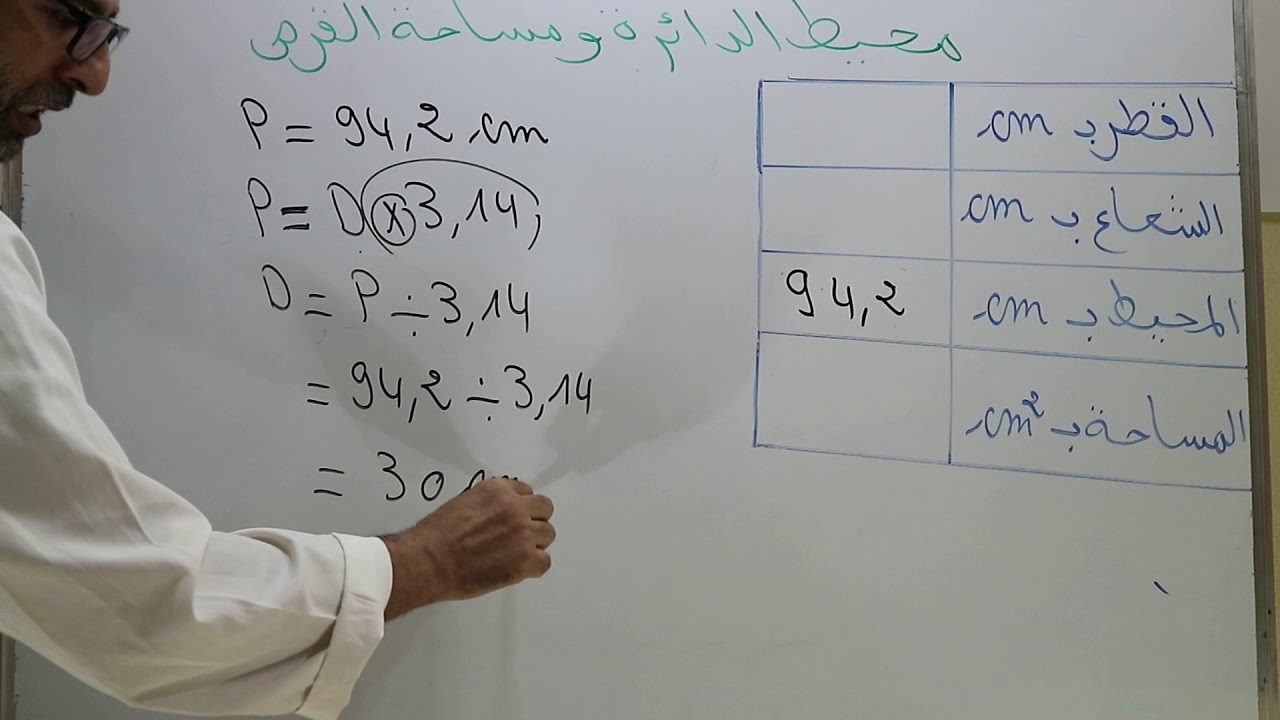 محيط الدائرة و مساحة القرص
P = 94,2 cm
P = D × 3,14
D = P ÷ 3,14
= 94,2 ÷ 3,14
= 30 cm
القطر بـ cm
الشعاع بـ cm
المحيط بـ cm 94,2
المساحة بـ cm²